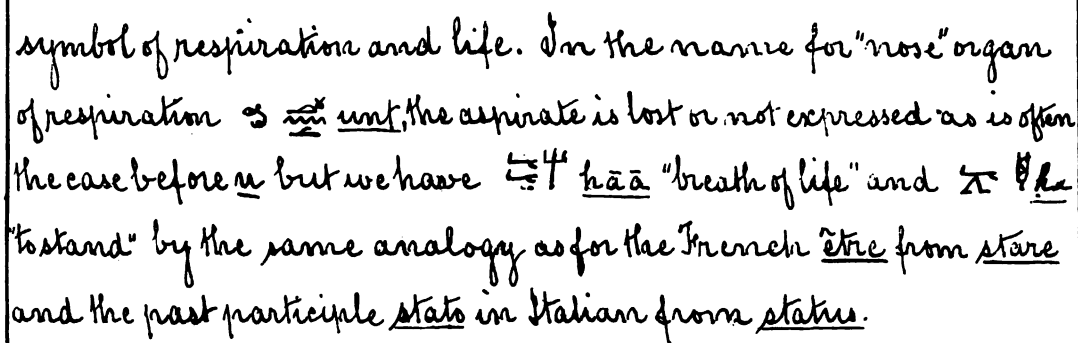 symbol of respiration and life. In the name for "nose" organ
of respiration unt, the aspirate is lost or not expressed as is often
the case before u but we have hāā "breath of life" and
"to stand" by the same analogy as for the French être from stare
and the past participle stato in Italian from status.